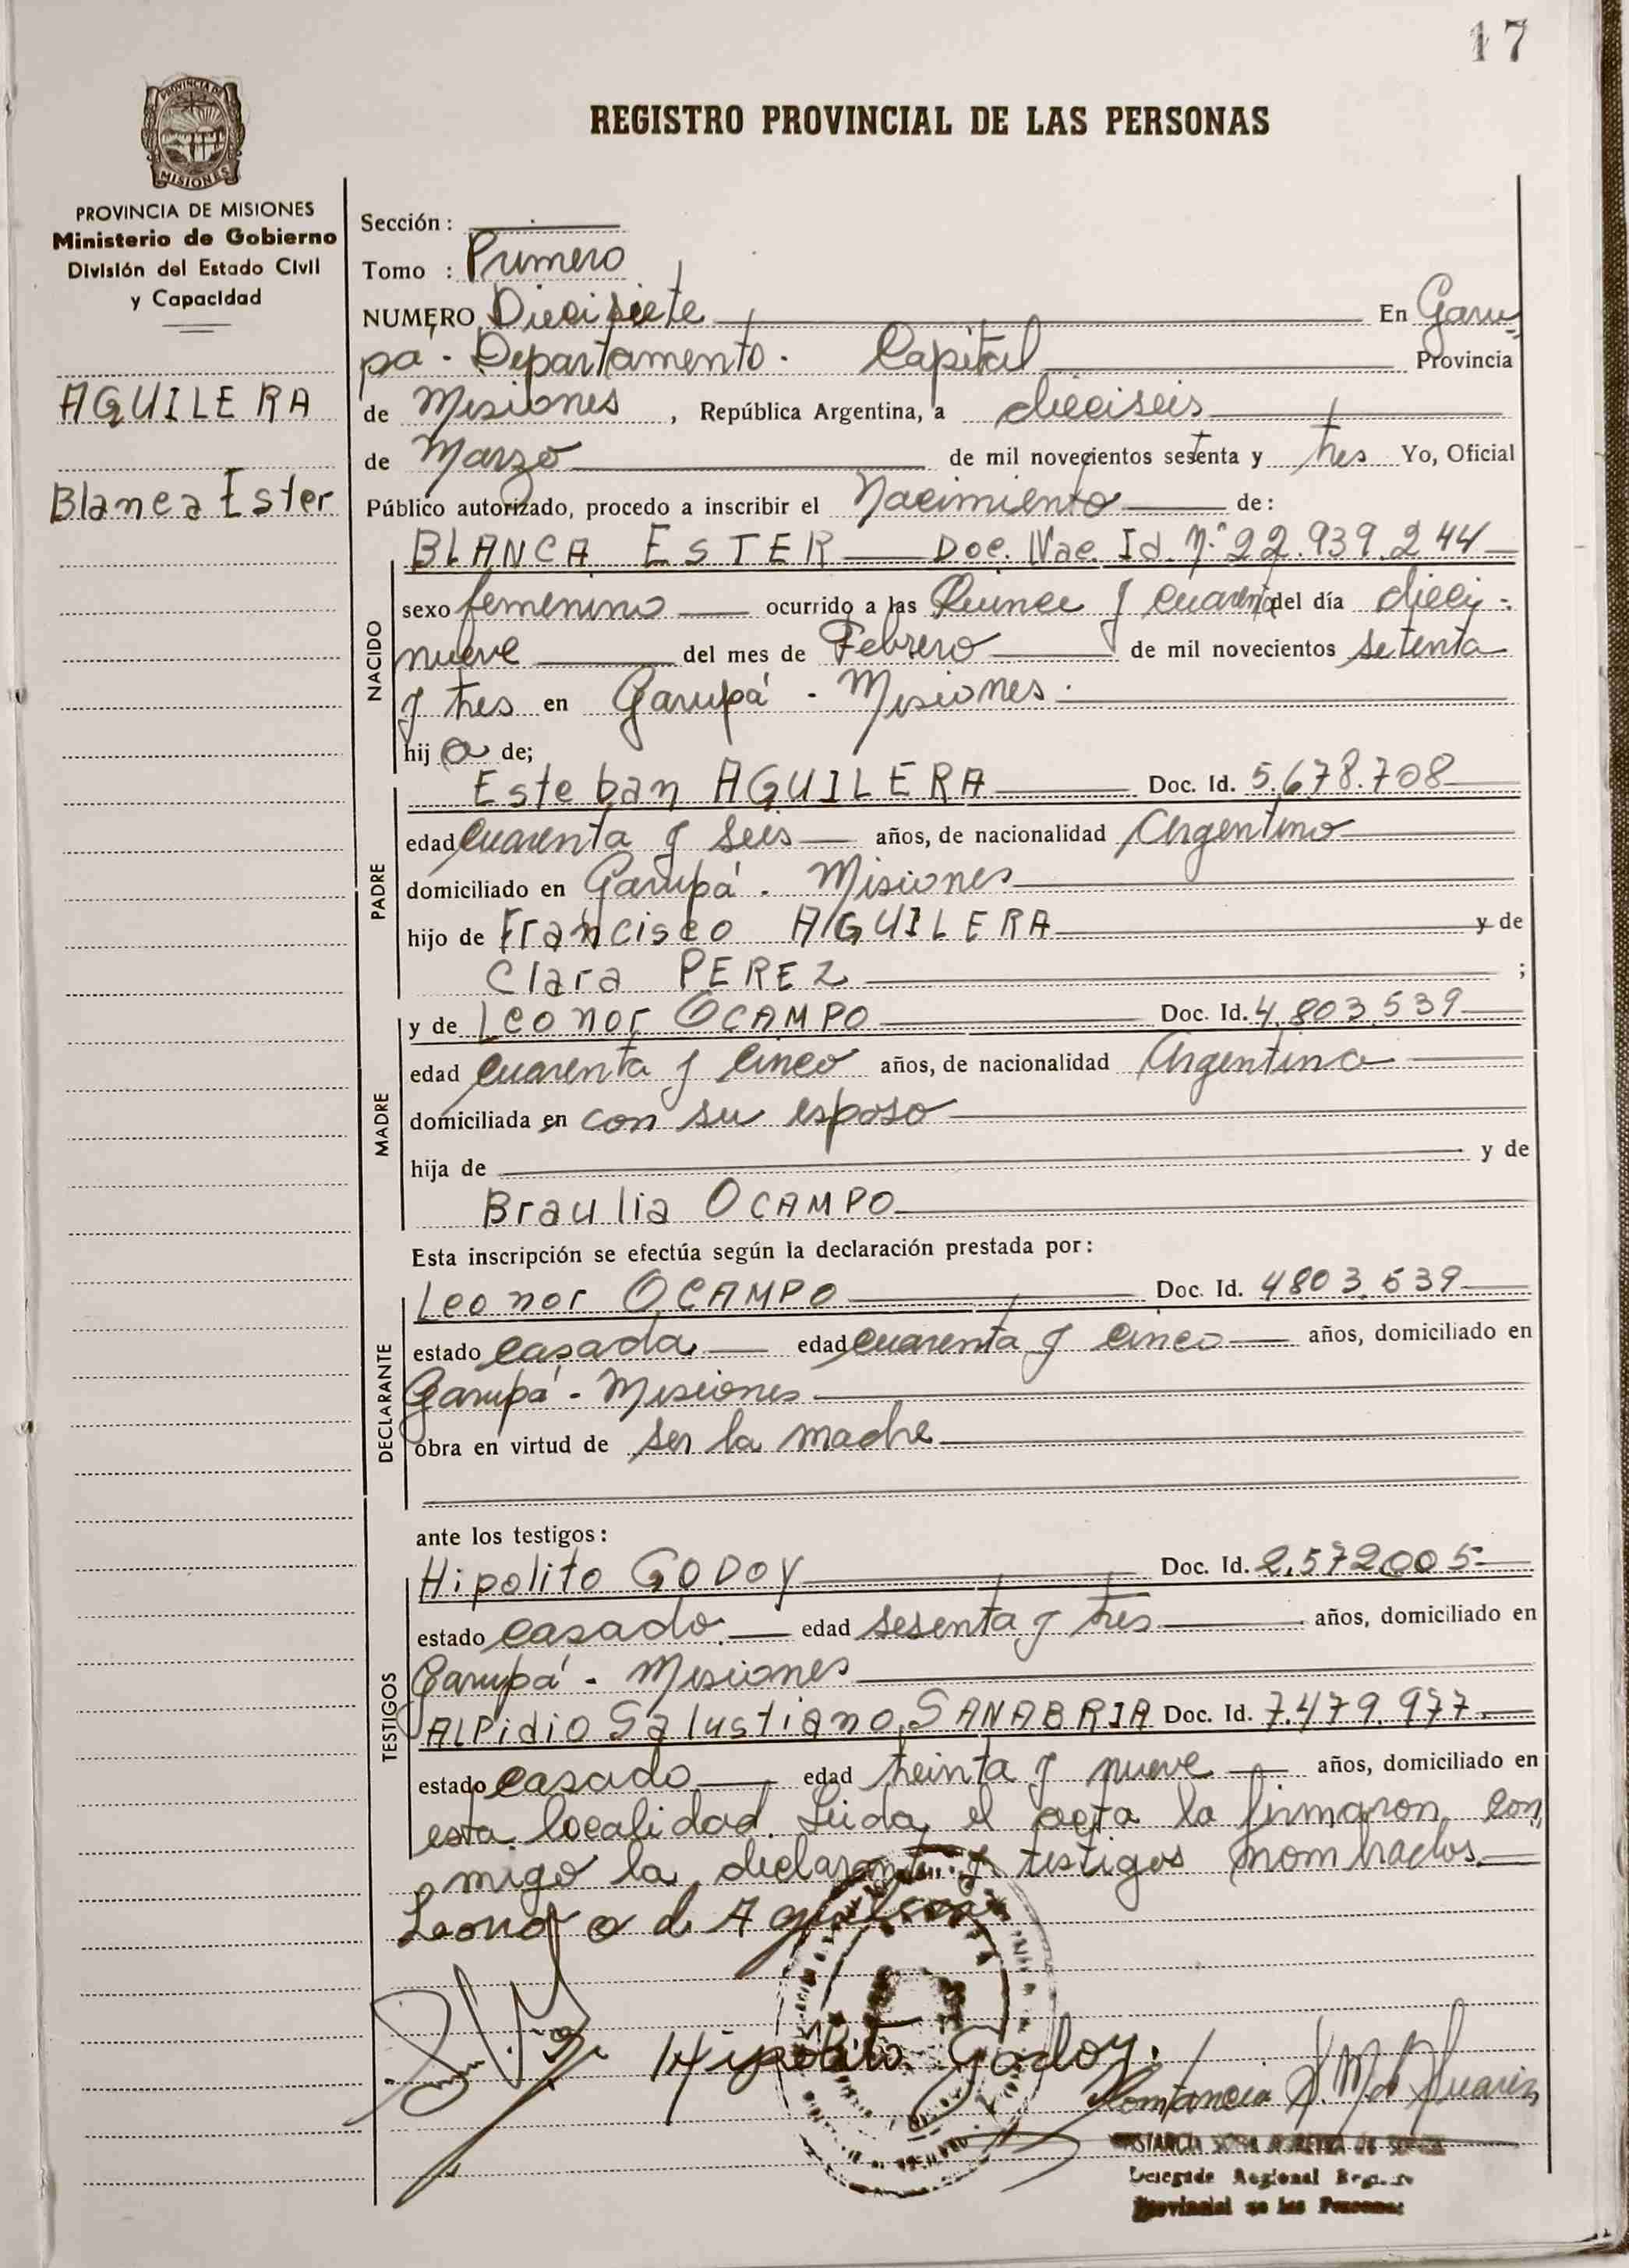 17
PROVINCIA DE
MISIONES
REGISTRO PROVINCIAL DE LAS PERSONAS
PROVINCIA DE MISIONES
Ministerio de Gobierno
División del Estado Civil
y Capacidad
AGUILERA
Blanca Ester
Sección :
Tomo : Primero
NUMERO Diecisiete En Garu-
pa - Departamento - Capital Provincia
de Misiones , República Argentina, a dieciseis
de Marzo de mil novecientos sesenta y tres Yo, Oficial
Público autorizado, procedo a inscribir el Nacimiento de :
BLANCA ESTER Doc. Nac. Id. N.° 22.939.244
NACIDO
sexo femenino ocurrido a las Quince y cuarenta del día dieci-
nueve del mes de Febrero de mil novecientos setenta
y tres en Garupá - Misiones.
hij a de;
PADRE
Esteban AGUILERA Doc. Id. 5.678.708
edad cuarenta y seis años, de nacionalidad Argentino
domiciliado en Garupá - Misiones
hijo de Francisco AGUILERA y de
Clara PEREZ ;
MADRE
y de Leonor OCAMPO Doc. Id. 4.803.539
edad cuarenta y cinco años, de nacionalidad Argentina
domiciliada en con su esposo
hija de y de
Braulia OCAMPO
Esta inscripción se efectúa según la declaración prestada por :
DECLARANTE
Leonor OCAMPO Doc. Id. 4803.539
estado casada edad cuarenta y cinco años, domiciliado en
Garupá - Misiones
obra en virtud de ser la madre
ante los testigos :
TESTIGOS
Hipolito GODOY Doc. Id. 2.572005
estado casado edad sesenta y tres años, domiciliado en
Garupá - Misiones
ALPidio Salustiano SANABRIA Doc. Id. 7.479.977
estado casado edad treinta y nueve años, domiciliado en
esta localidad. Leida el acta la firmaron con
migo la declarante y testigos nombrados
Leonor o d. Aguilera
Hipólito Godoy.
Delegada Regional
Provincial de las Personas